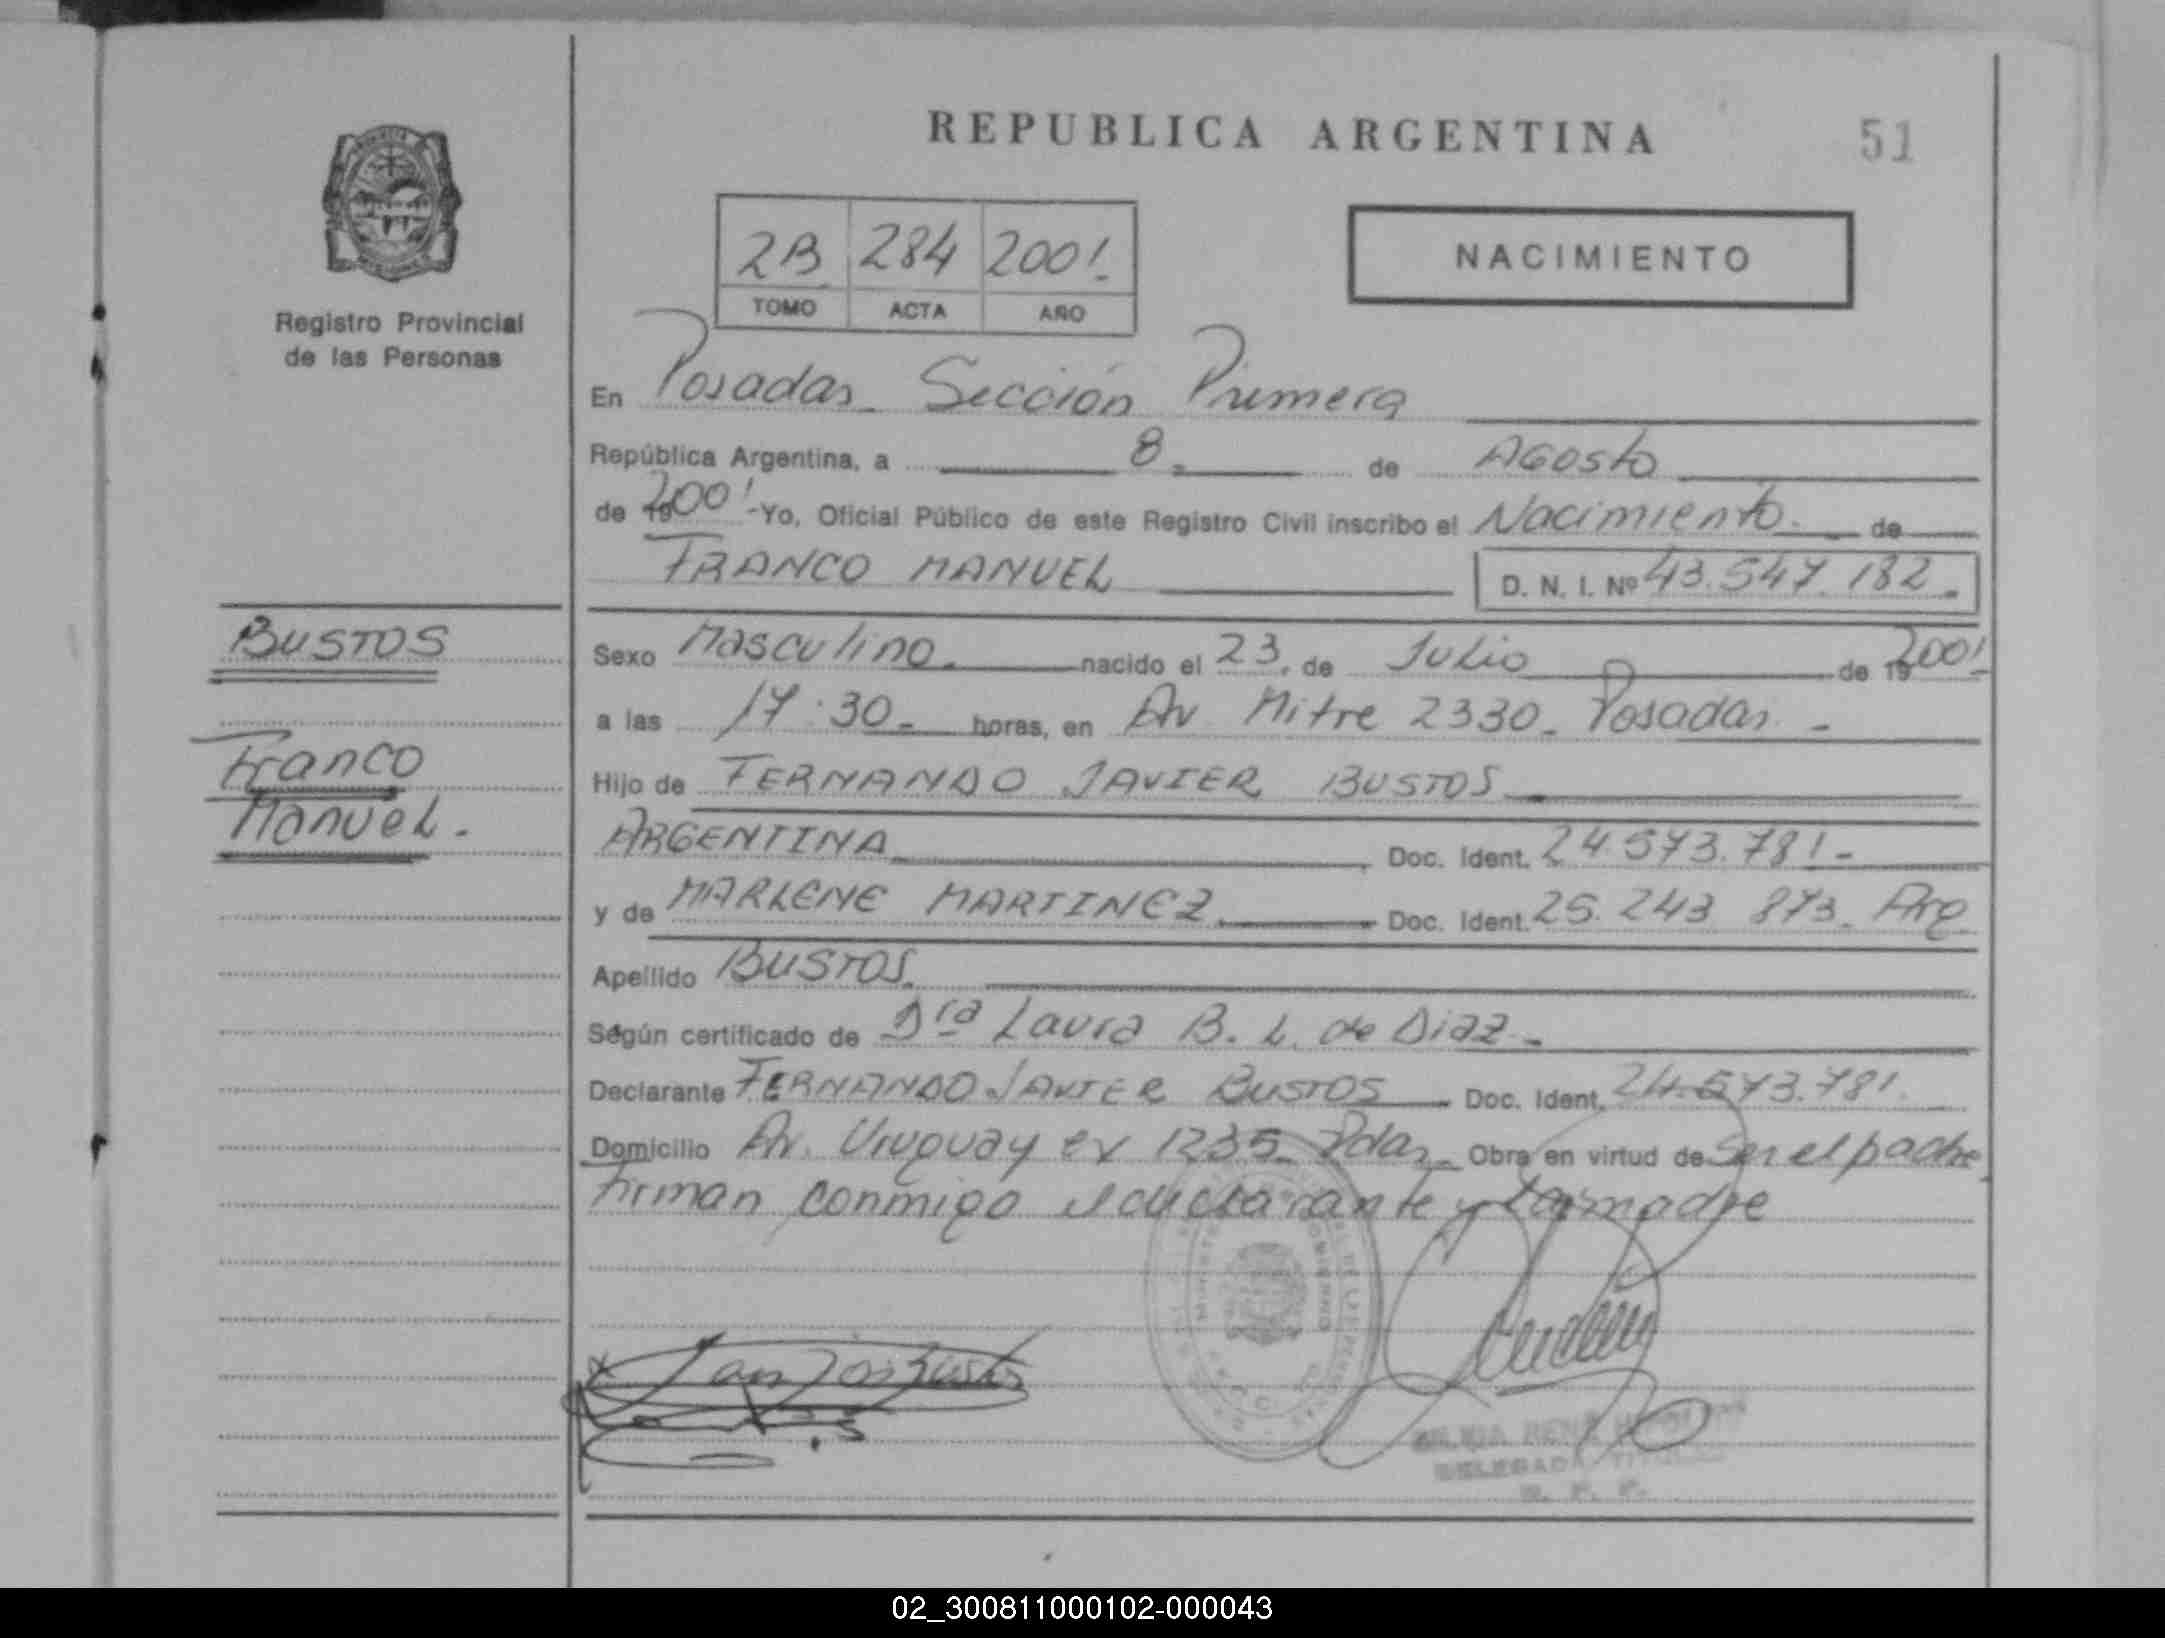 REPUBLICA ARGENTINA
51
2B 284 2001.
TOMO ACTA AÑO
NACIMIENTO
Registro Provincial
de las Personas
En Posadas Sección Primera
República Argentina, a 8 de Agosto
de 2001 - Yo, Oficial Público de este Registro Civil inscribo el Nacimiento. de
FRANCO MANUEL D. N. I. Nº 43.547.182
BUSTOS
Sexo Masculino. nacido el 23. de Julio de 192001
a las 17.30 horas, en Av Mitre 2330 Posadas
Franco
Hijo de FERNANDO JAVIER BUSTOS
Manuel.
ARGENTINA Doc. Ident. 24.573.781-
y de MARLENE MARTINEZ Doc. Ident. 25.243.873 Arg
Apellido BUSTOS.
Según certificado de Dra Laura B. L. de Diaz
Declarante FERNANDO JAVIER BUSTOS Doc. Ident. 24.573.781.
Domicilio Av. Uruguay ex 1235 Pdas Obra en virtud de ser el padre
firman conmigo el declarante y la madre
DELEGADA TITULAR
R. P. P.
02_300811000102-000043